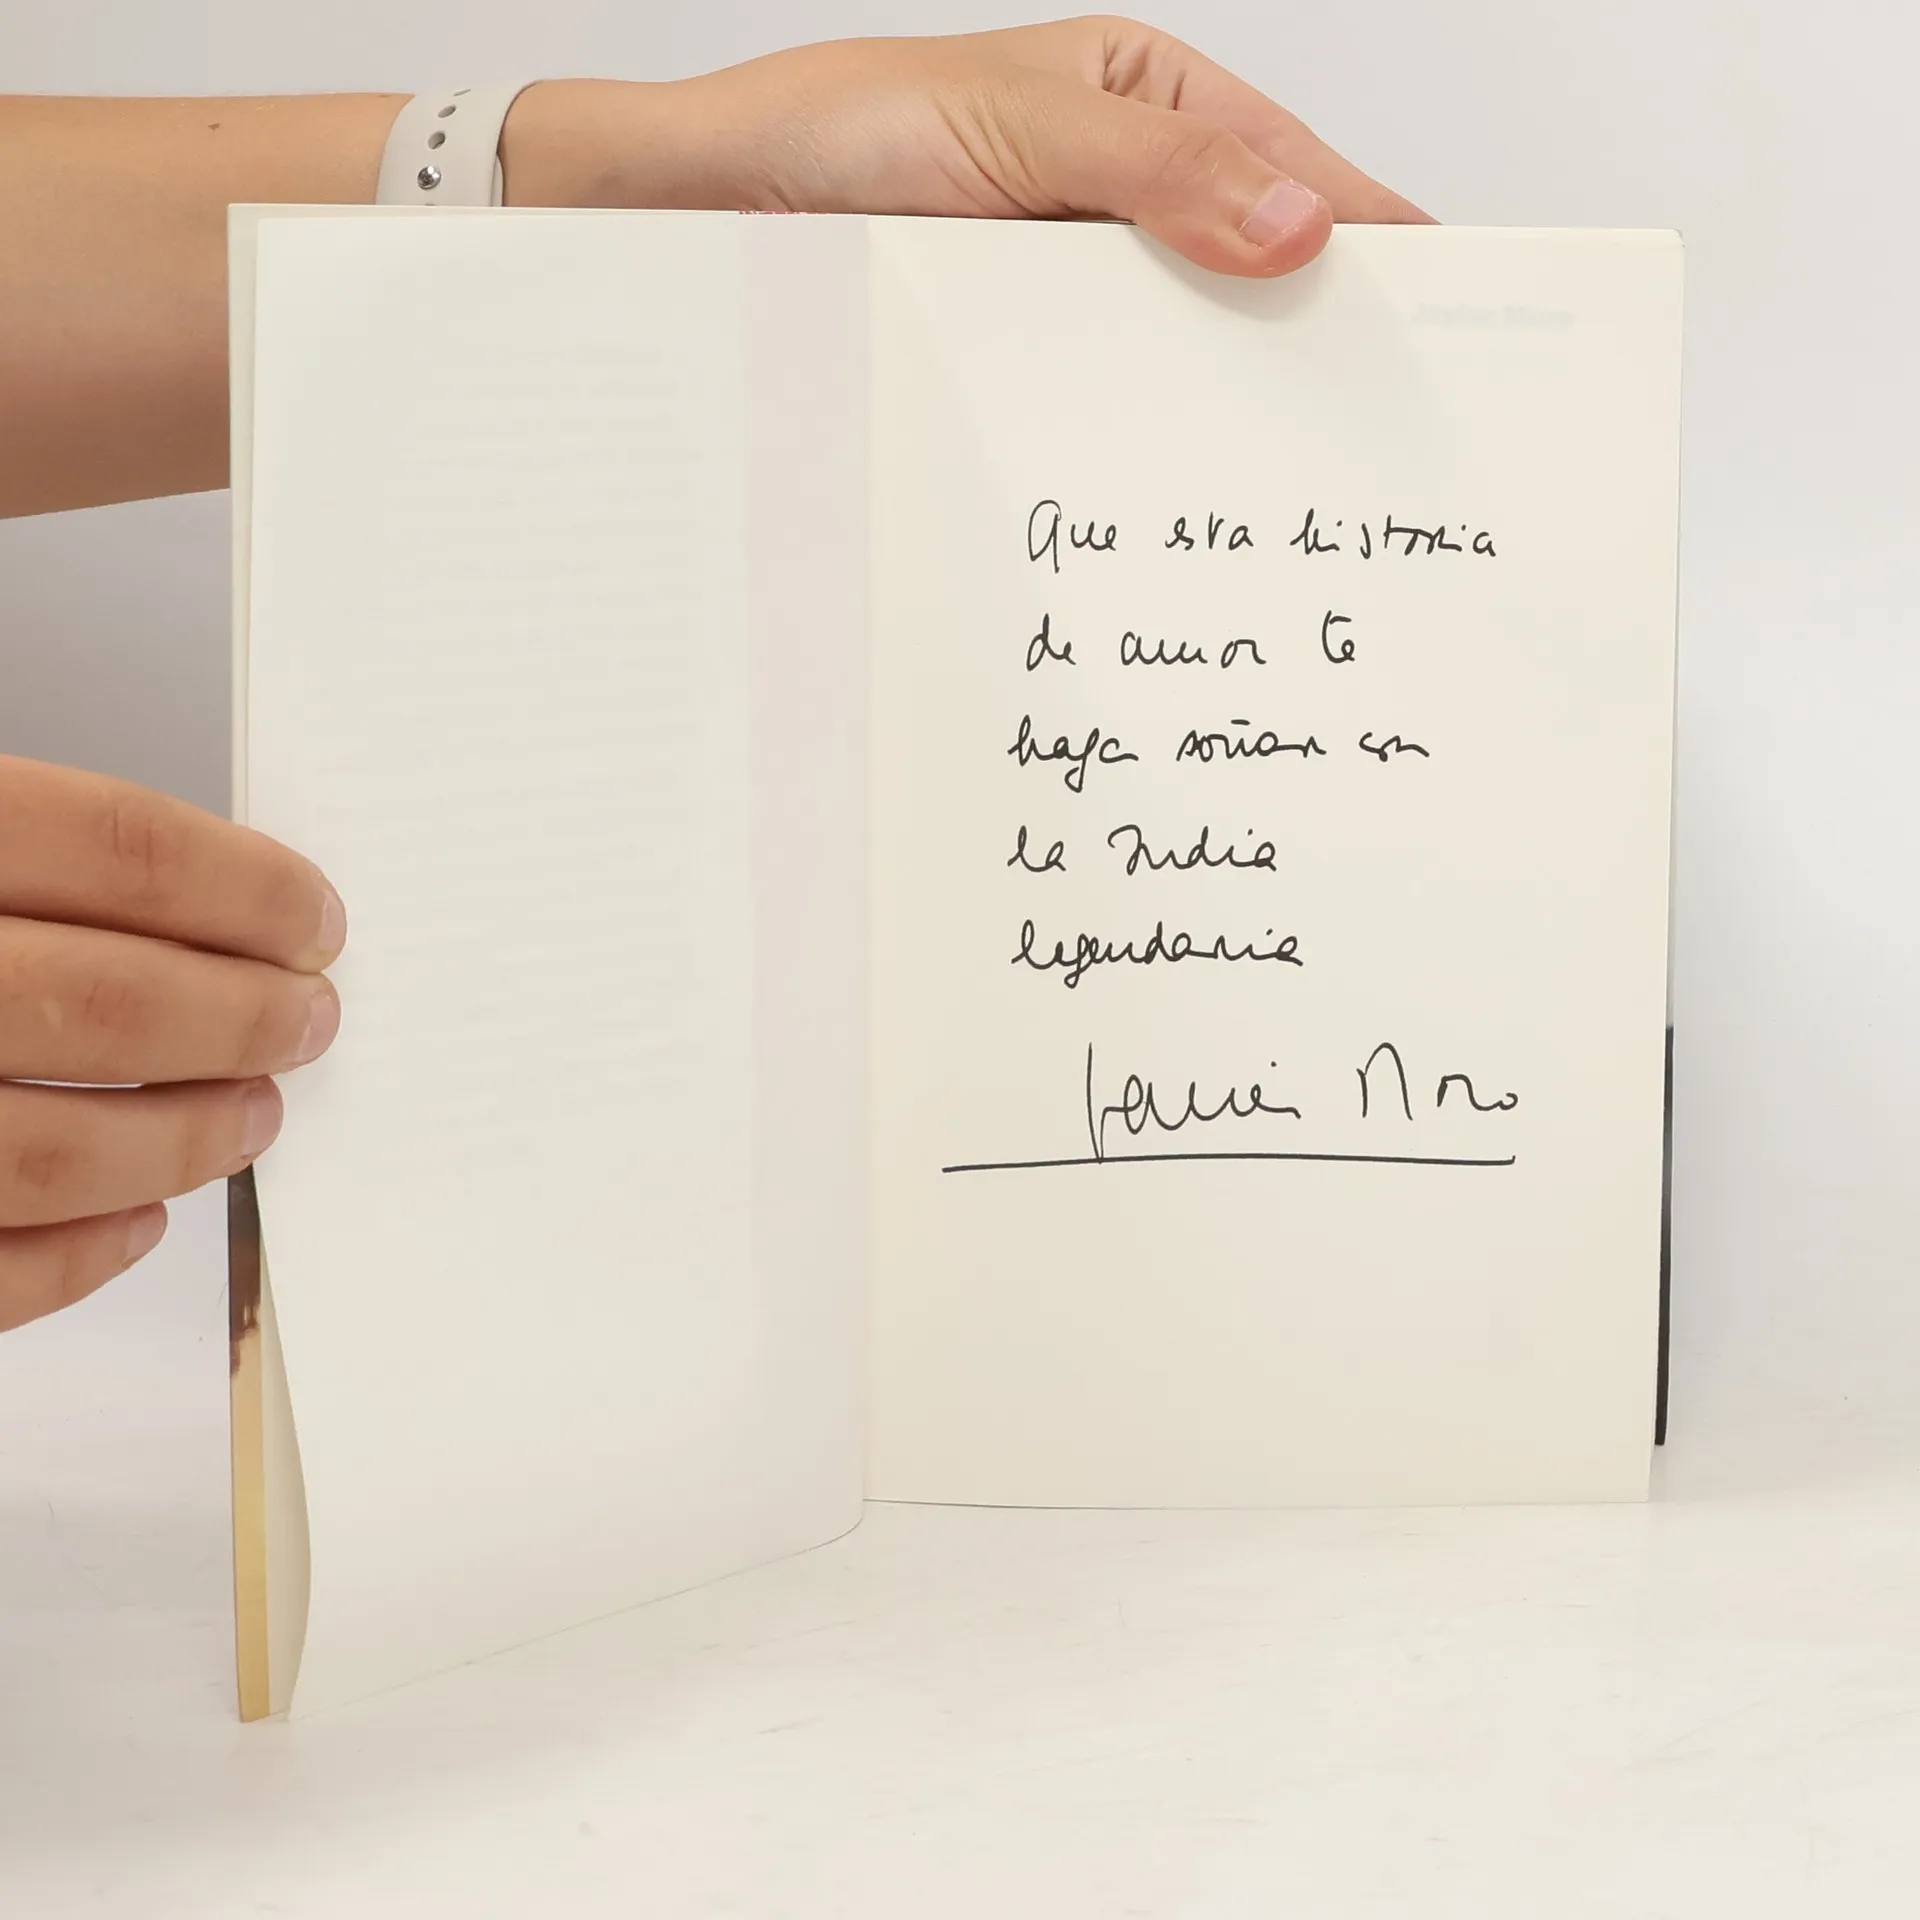 Javier Moro
Que esta historia
de amor te
haga soñar con
la India
legendaria
Javier Moro